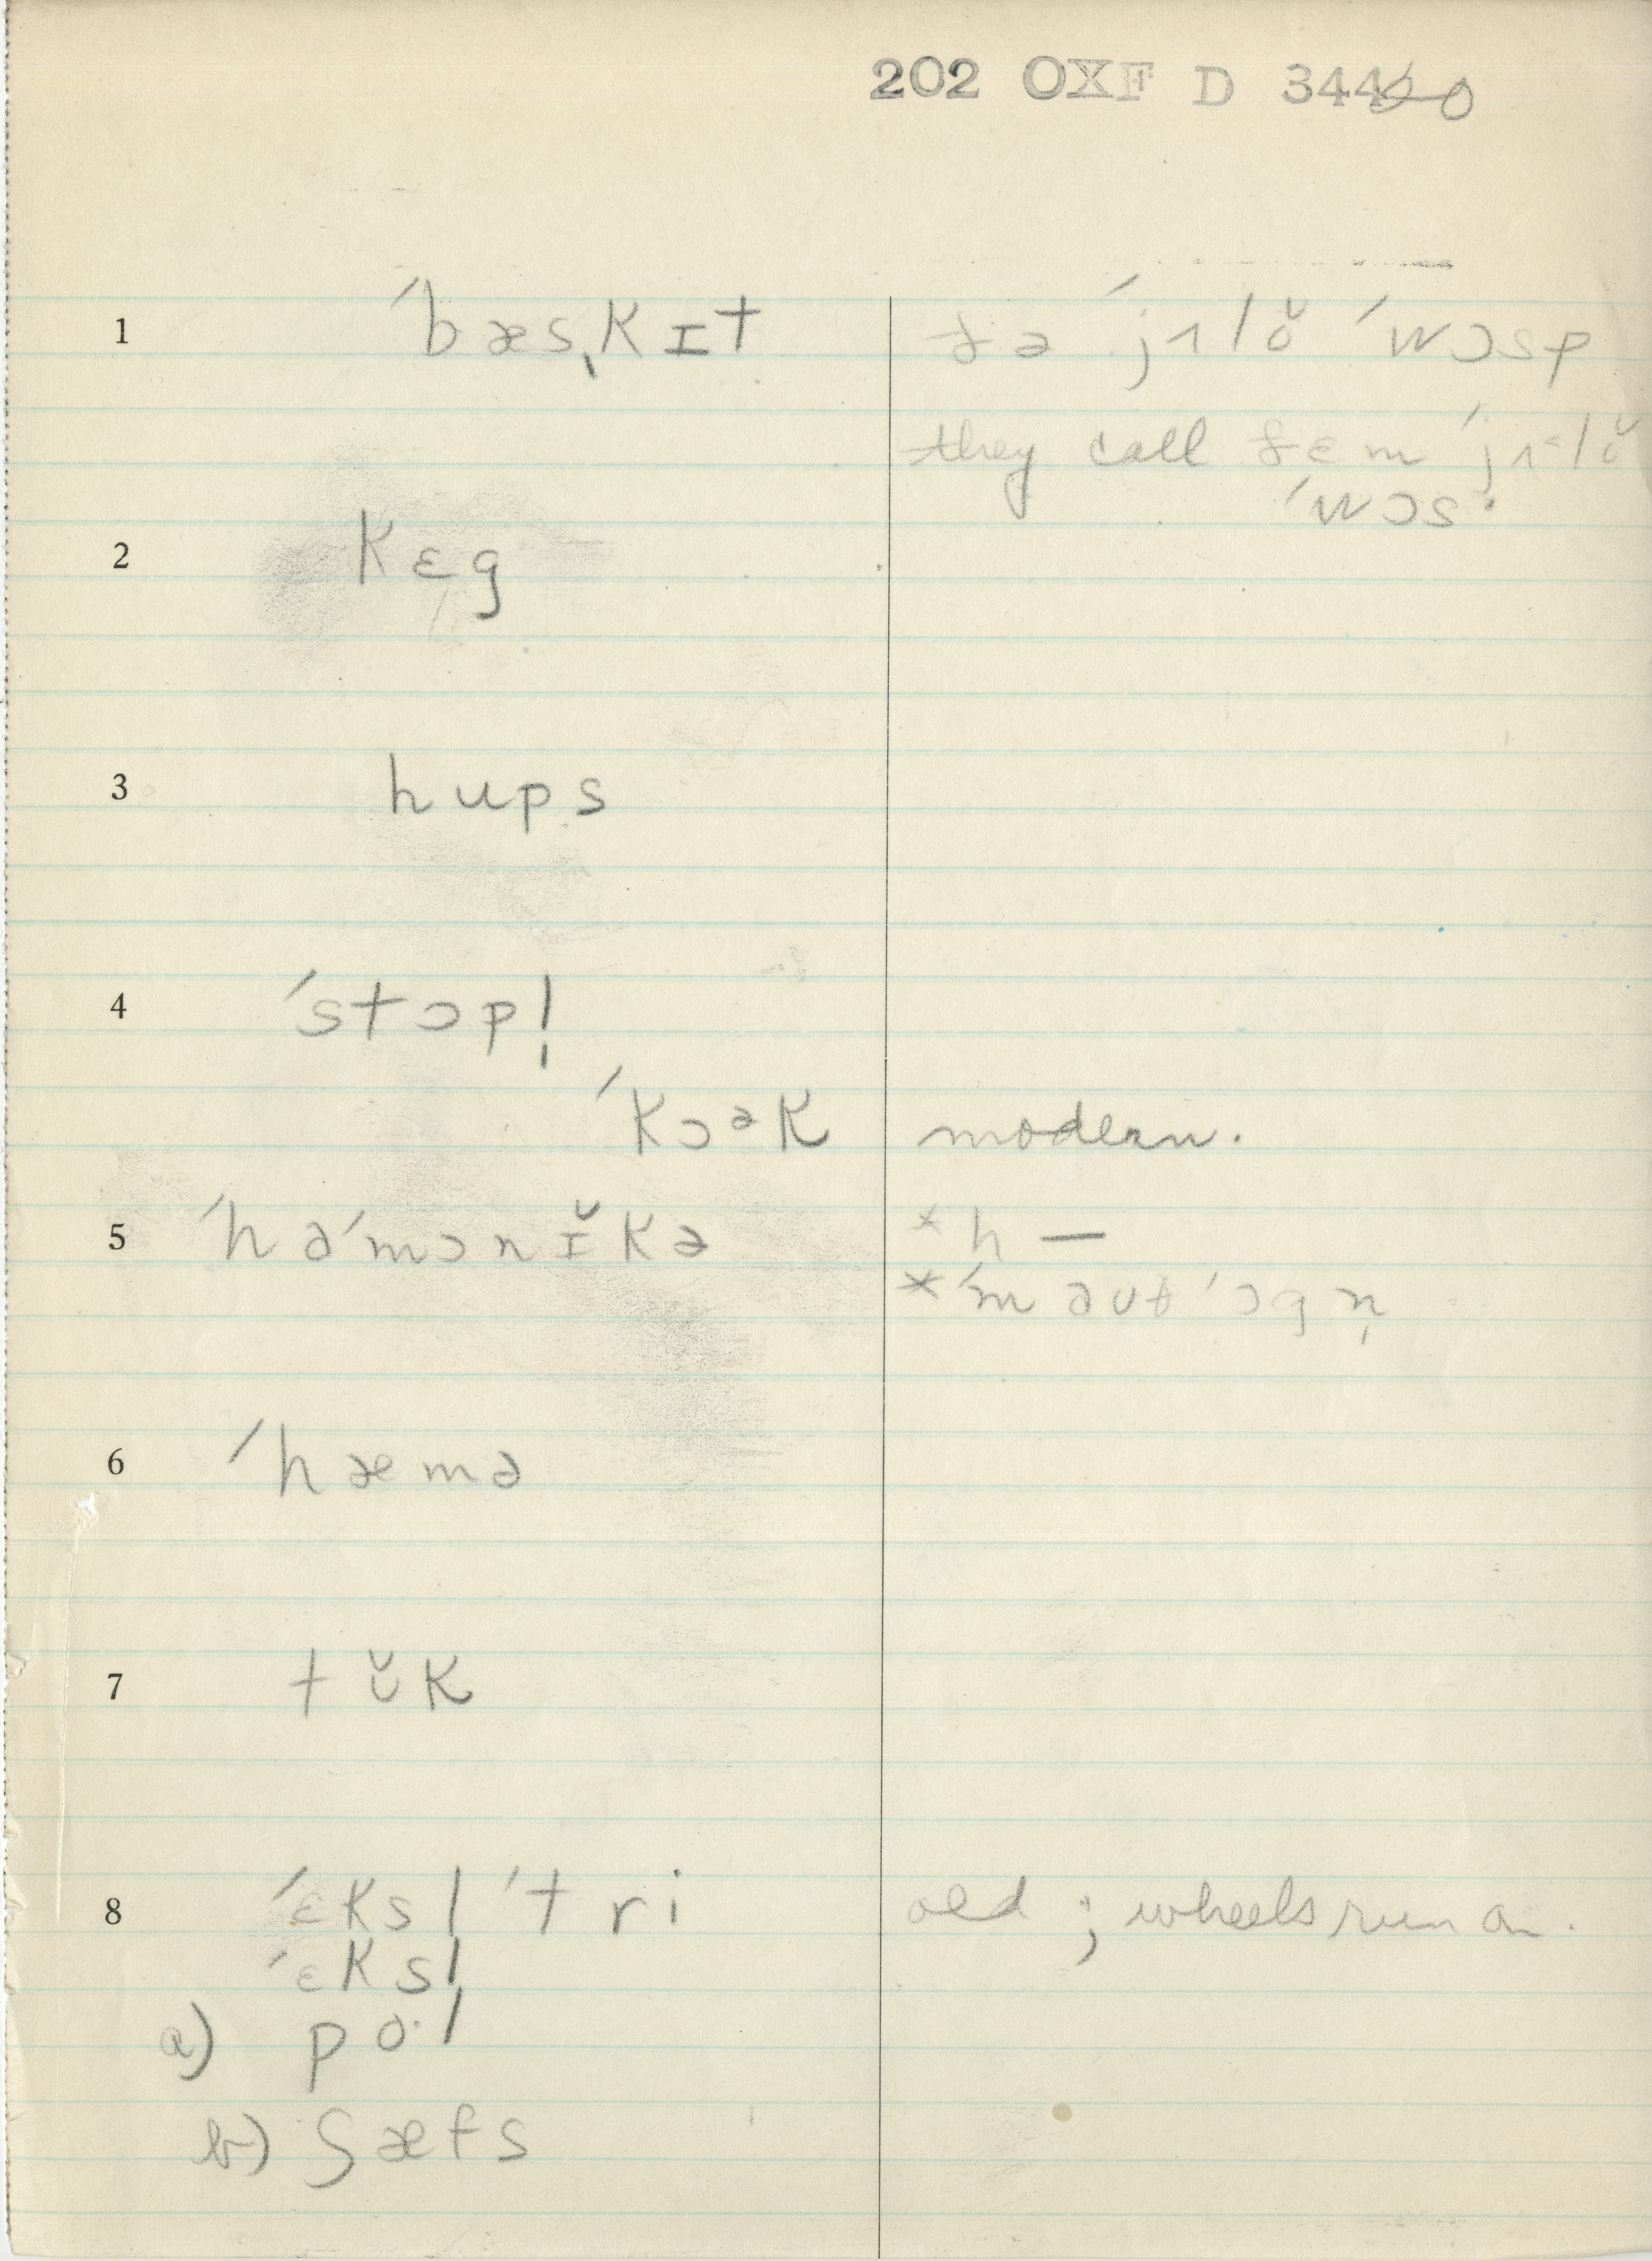 202 OXF D 344 20
1 ˊbæsˌkɪt ðə ˊjɿlŏ ˊwɔsp
they call ðɛm ˊjɿ˂lŏ
ˊwɔs·
2 kɛg
3 hups
4 ˊstɔp!
ˊkɔək modern.
5 ˊhəˊmɔnɪ̆kə *h —
*ˊmaʊθˊɔgn̩
6 ˊhæmə
7 tʊ̆k
8 ˊɛksl ˊtri old ; wheels run on.
ˊɛksl̩
a) po·l
b) ʃæfs